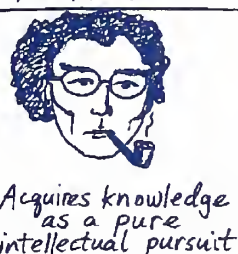 Acquires knowledge
as a pure
intellectual pursuit